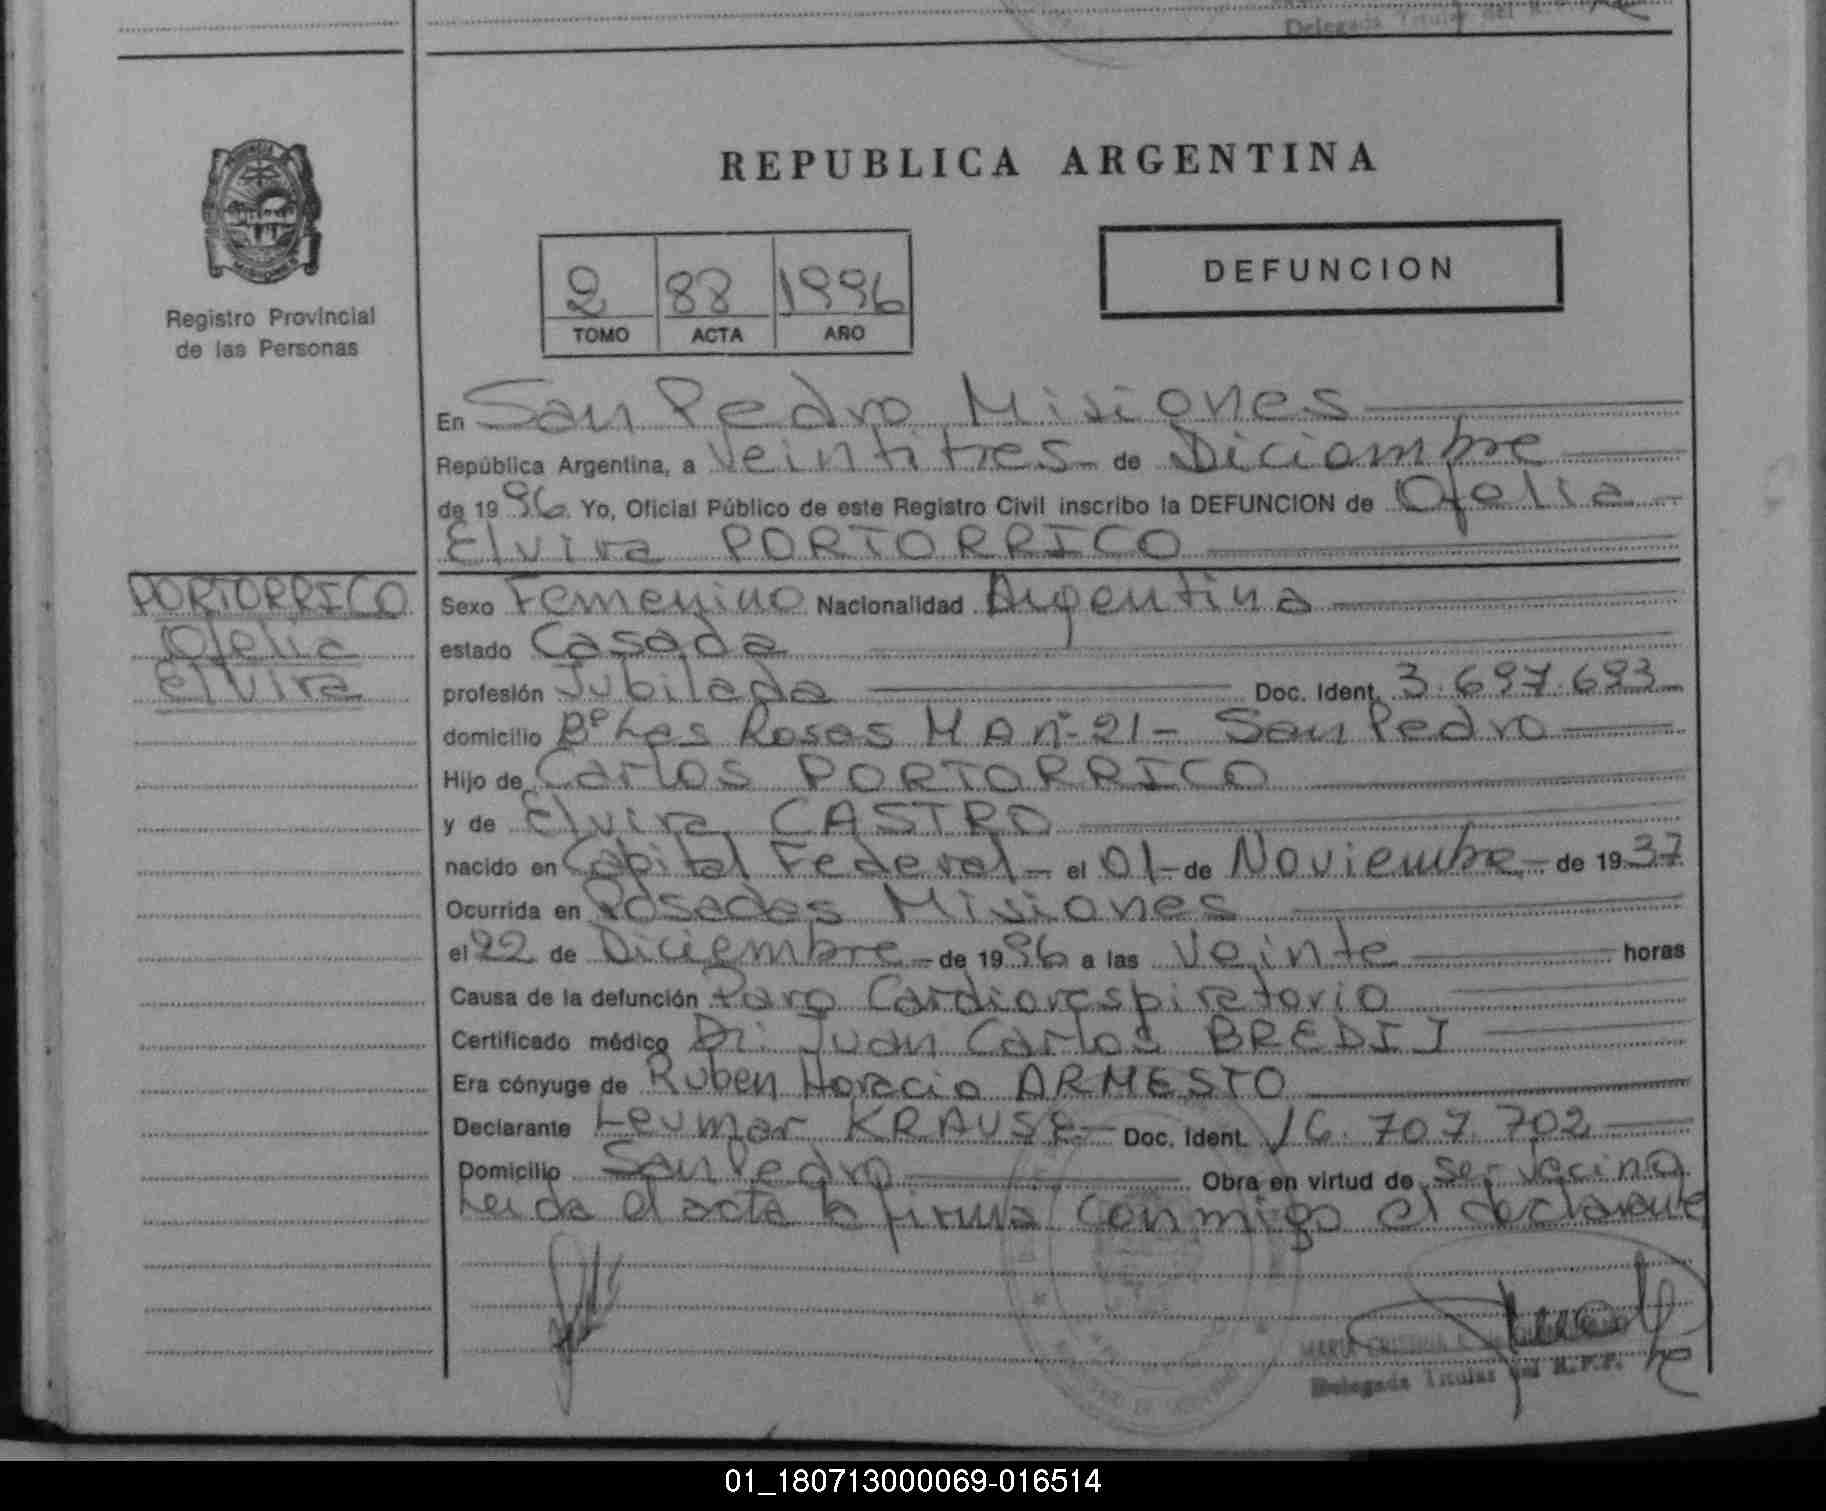 Delegada Titular del R.
REPUBLICA ARGENTINA
Registro Provincial
de las Personas
2 88 1996
TOMO ACTA AÑO
DEFUNCION
En San Pedro Misiones
República Argentina, a Veintitres de Diciembre
de 1996. Yo, Oficial Público de este Registro Civil inscribo la DEFUNCION de Ofelia
Elvira PORTORRICO
PORTORRICO
Ofelia
Elvira
Sexo Femenino Nacionalidad Argentina
estado Casada
profesión Jubilada Doc. Ident. 3.697.693
domicilio Bº Las Rosas M A nº 21 - San Pedro
Hijo de Carlos PORTORRICO
y de Elvira CASTRO
nacido en Capital Federal - el 01 - de Noviembre - de 1937
Ocurrida en Posadas Misiones
el 22 de Diciembre - de 1996 a las Veinte horas
Causa de la defunción Paro Cardiorespiratorio
Certificado médico Dr. Juan Carlos
Era cónyuge de Ruben Horacio ARMESTO
Declarante Leumar KRAUSE - Doc. Ident. 16.707.702
Domicilio San Pedro Obra en virtud de ser vecino
Leida el acta la firma conmigo el declarante
MARIA CRISTINA
Delegada Titular del R.P.P.
01_180713000069-016514